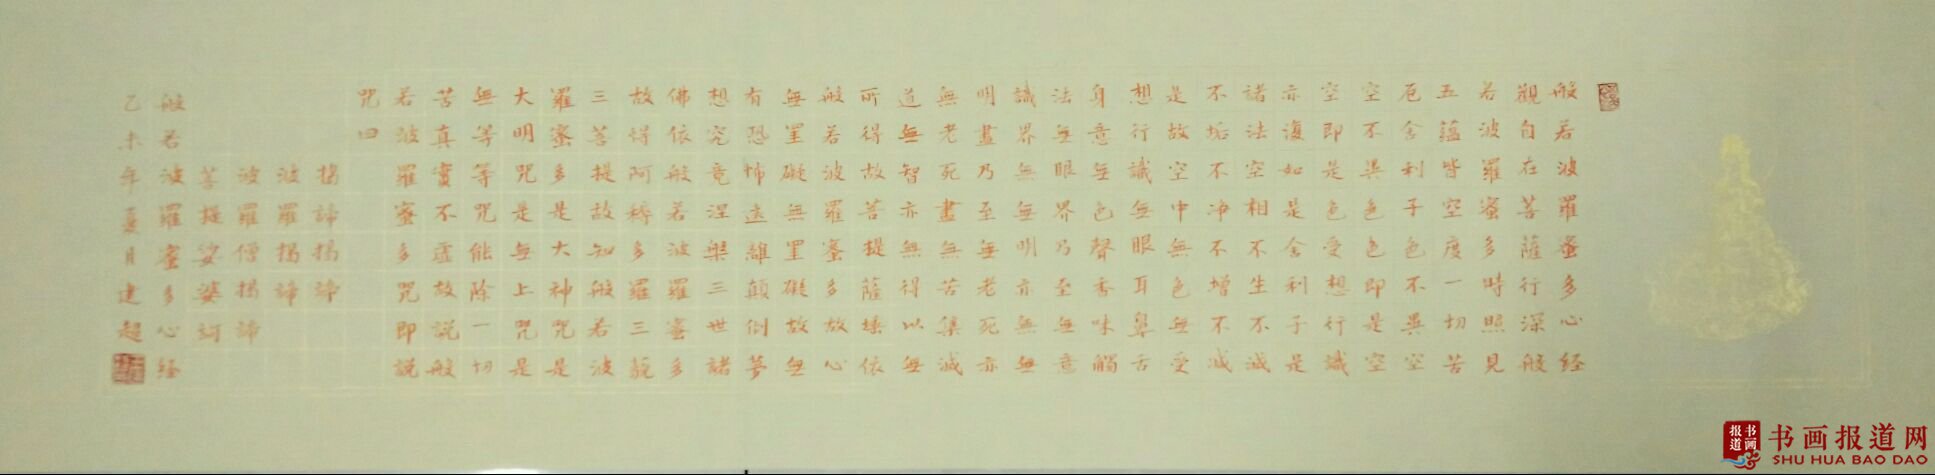 般若波羅蜜多心经
觀自在菩薩行深般
若波羅蜜多時照見
五蘊皆空度一切苦
厄舍利子色不異空
空不異色色即是空
空即是色受想行識
亦復如是舍利子是
諸法空相不生不滅
不垢不净不增不减
是故空中無色無受
想行識無眼耳鼻舌
身意無色聲香味觸
法無眼界乃至無意
識界無無明亦無無
明盡乃至無老死亦
無老死盡無苦集滅
道無智亦無得以無
所得故菩提薩埵依
般若波羅蜜多故心
無罣礙無罣礙故無
有恐怖遠離顛倒夢
想究竟涅槃三世諸
佛依般若波羅蜜多
故得阿耨多羅三藐
三菩提故知般若波
羅蜜多是大神咒是
大明咒是無上咒是
無等等咒能除一切
苦真實不虛故說般
若波羅蜜多咒即說
咒曰
揭諦揭諦
波羅揭諦
波羅僧揭諦
菩提娑婆訶
般若波羅蜜多心经
乙未年夏月建超
书画报道
书画报道网
SHU HUA BAO DAO